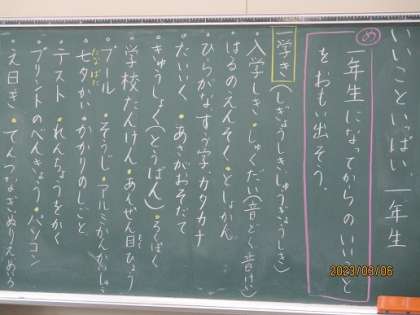 いいこといっぱい、一年生
め
一年生になってからのいいこと
をおもい出そう。
一学き(しぎょうしき、しゅうぎょうしき)
・入学しき・しゅくだい(音どく、音けい)
・はるのえんそく・としょかん
・ひらがな、すう字、カタカナ
・たいいく・あさがおそだて
・きゅうしょく(とうばん)・ろくぼく
・学校たんけん・あんぜん目ひょう
・プール・そうじ・アルミかん
・七夕かい・かかりのしごと
たなばた
・テスト・れんちょうをかく
・プリントのべんきょう・パソコン
・え日き・てんつなぎ、ぬりえ、めいろ
2023/09/06